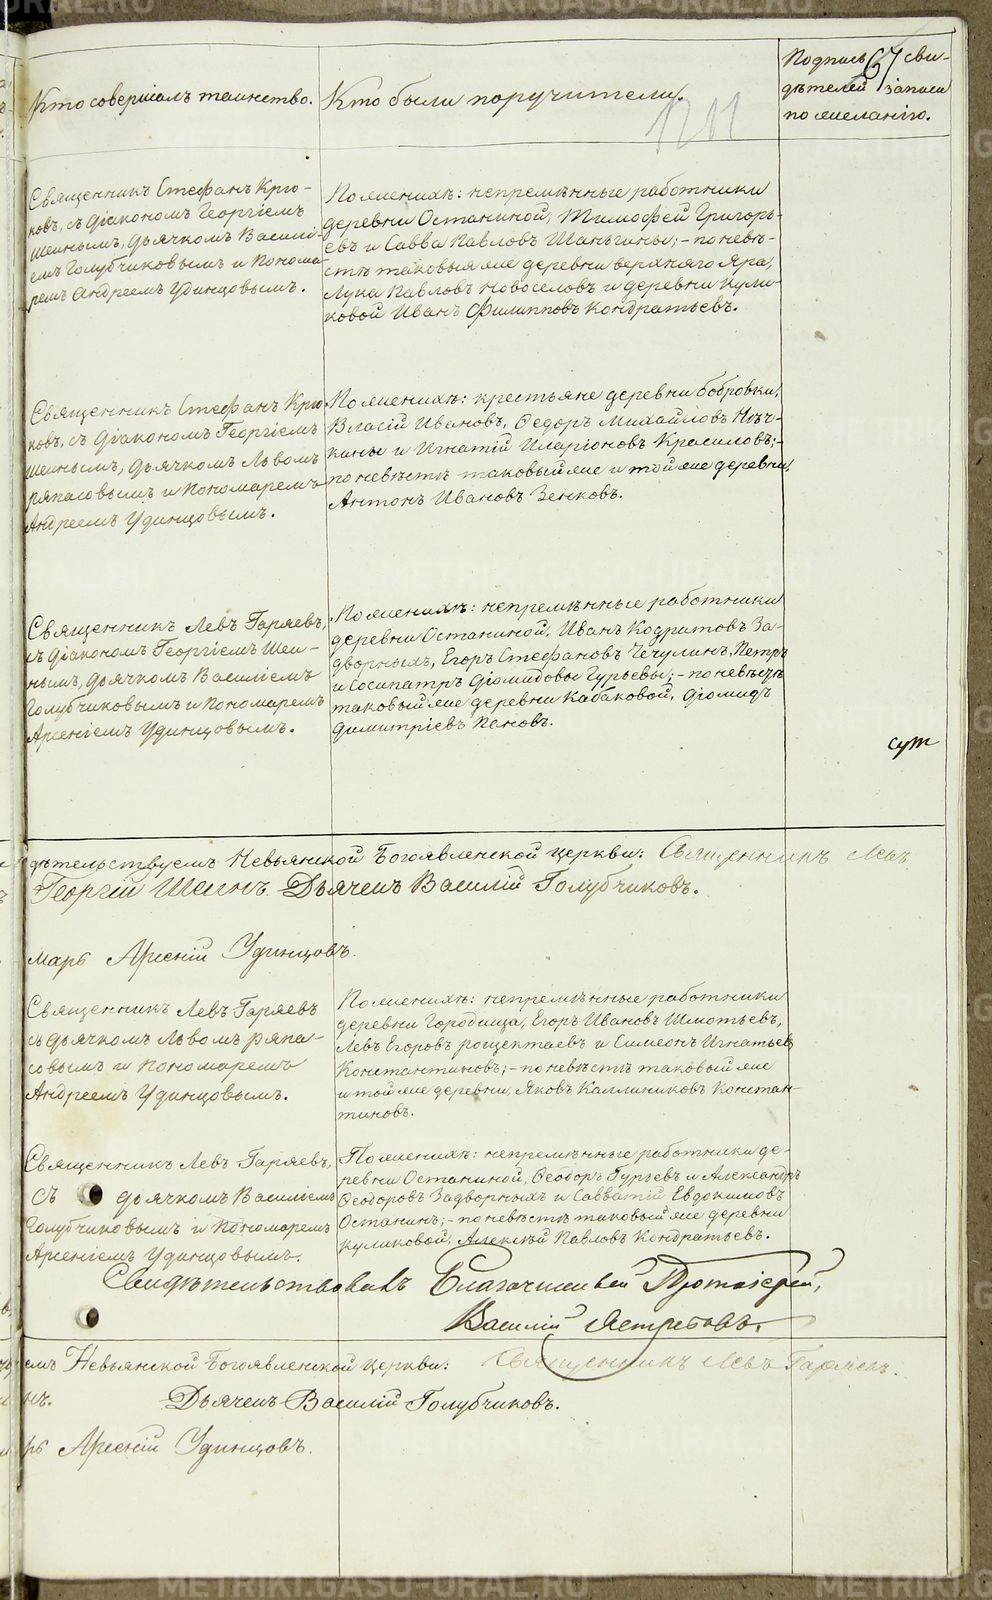 67
Кто совершалъ таинство.
Кто были поручители.
Подпись сви-
дѣтелей записи
по желанію.
1211
Священникъ Стефанъ Крю-
ковъ, съ діакономъ Георгіемъ
Шеинымъ, дьячкомъ Василі-
емъ Голубчиковымъ и Понома-
ремъ Андреемъ Удинцовымъ.
По женихѣ: непремѣнные работники
деревни Останиной, Тимофей Григорь-
евъ и Савва Павловъ Шаньгины; - по невѣ-
стѣ таковыя же деревни верхняго Яра,
Лука Павловъ Новоселовъ и деревни Кули-
ковой Иванъ Филипповъ Кондратьевъ.
Священникъ Стефанъ Крю-
ковъ, съ діакономъ Георгіемъ
Шеинымъ, дьячкомъ Львомъ
Ряпасовымъ и Пономаремъ
Андреемъ Удинцовымъ.
По женихѣ: крестьяне деревни бобровки,
Власій Ивановъ, Федоръ Михайловъ Нѣч-
кины и Игнатій Иларіоновъ Красиловъ; -
по невѣстѣ таковый же и той же деревни,
Антонъ Ивановъ Зенковъ.
Священникъ Левъ Гаряевъ,
съ діакономъ Георгіемъ Шеи-
нымъ, дьячкомъ Василіемъ
Голубчиковымъ и Пономаремъ
Арсеніемъ Удинцовымъ.
По женихѣ: непремѣнные работники
деревни Останиной, Иванъ Кодратовъ За-
дворныхъ, Егоръ Стефановъ Чечулинъ, Петръ
и Сосипатръ Діомидовы Гурьевы; - по невѣстѣ
таковый же деревни Кабаковой, Діомидъ
Димитріевъ Пановъ.
сут
дѣтельствуемъ Невьянской Богоявленской церкви: Священникъ Левъ
Георгій Шеинъ Дьячекъ Василій Голубчиковъ.
марь Арсеній Удинцовъ.
Священникъ Левъ Гаряевъ
съ дьячкомъ Львомъ Ряпа-
совымъ и Пономаремъ
Андреемъ Удинцовымъ.
По женихѣ: непремѣнные работники
деревни Городища, Егоръ Ивановъ Шмотьевъ,
Левъ Егоровъ Рощектаевъ и Симеонъ Игнатьев
Константиновъ; - по невѣстѣ таковый же
и той же деревни, Яковъ Каллиниковъ Констан-
тиновъ.
Священникъ Левъ Гаряевъ,
съ дьячкомъ Василіемъ
Голубчиковымъ и Пономаремъ
Арсеніемъ Удинцовымъ.
По женихѣ: непремѣнные работники де-
ревни Останиной, Феодоръ Гурьевъ и Александръ
Феодоровъ Задворныхъ и Савватій Евдокимовъ
Останинъ; - по невѣстѣ таковый же деревни
Куликовой, Алексѣй Павловъ Кондратьевъ.
Свидѣтельствовалъ Благочинный Протоіерей,
Василій Ястребовъ.
емъ Невьянской Богоявленской церкви: Священникъ Левъ Гаряевъ.
нъ. Дьячекъ Василій Голубчиковъ.
рь Арсеній Удинцовъ.
METRIKI.GASO-URAL.RU